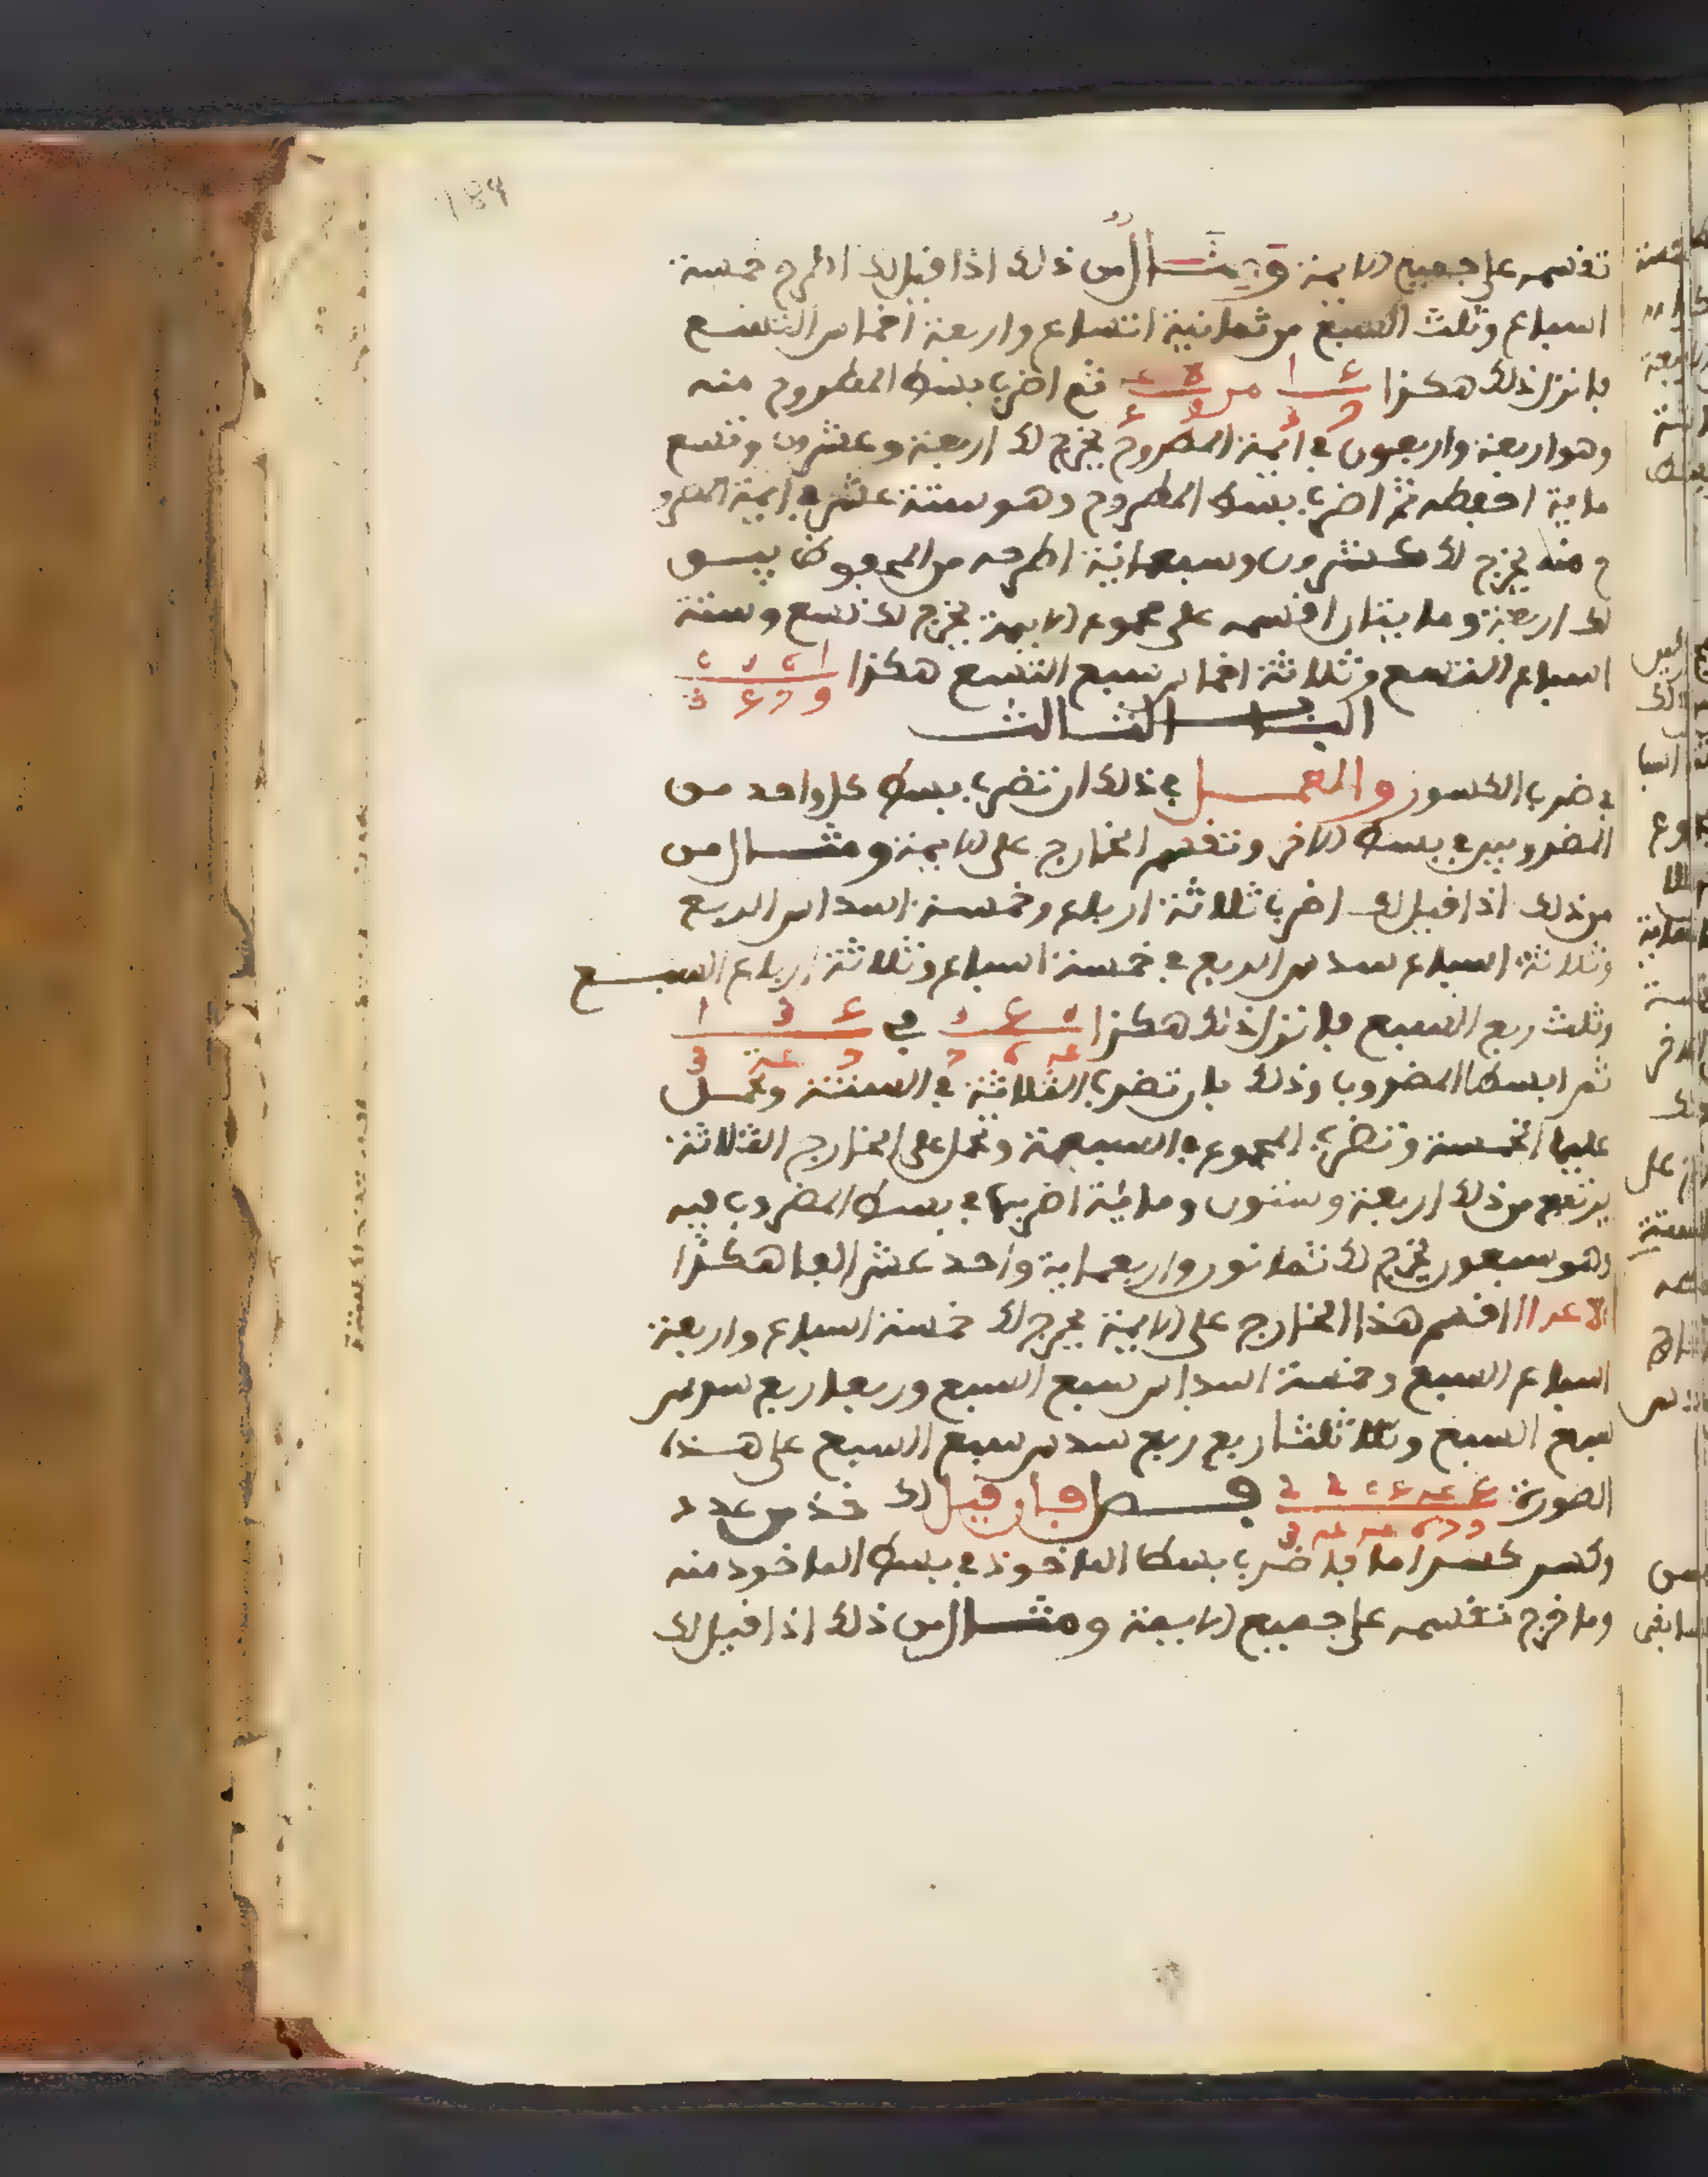 189
تقسمه على جميع الايمة ومثال من ذلك اذا قيل لك اطرح خمسة
اسباع وثلث السبع من ثمانية اتساع واربعة اخماس التسع
فانزل ذلك هكذا من ثم اضرب بسط المطروح منه
وهو اربعة واربعون في ايمة المطروح يخرج لك اربعة وعشرون وتسع
ماية احفظه ثم اضرب بسط المطروح وهو ستة عشر في ايمة المطرو
ح منه يخرج لك عشرون وسبعماية اطرحه من المحفوظ يبق
لك اربعة ومايتان اقسمه على مجموع الايمة يخرج لك تسع وستة
اسباع التسع وثلاثة اخماس سبع التسع هكذا
الباب الثالث
في ضرب الكسور والعمل في ذلك ان تضرب بسط كل واحد من
المضروبين في بسط الاخر وتقسم الخارج على الايمة ومثال من
من ذلك اذا قيل لك اضرب ثلاثة ارباع وخمسة اسداس الربع
وثلاثة اسباع سدس الربع في خمسة اسباع وثلاثة ارباع السبع
وثلث ربع السبع فانزل ذلك هكذا في
ثم ابسط المضروب وذلك بان تضرب الثلاثة في الستة وتحمل
عليها الخمسة وتضرب المجموع في السبعة وتحمل على الخارج الثلاثة
يرتفع من ذلك اربعة وستون وماية اضربها في بسط المضروب فيه
وهو سبعون يخرج لك ثمانون واربعماية واحد عشر الفا هكذا
اقسم هذا الخارج على الايمة يخرج لك خمسة اسباع واربعة
اسباع السبع وخمسة اسداس سبع السبع وربعا ربع سدس
سبع السبع وثلثا ربع ربع سدس سبع السبع على هذه
الصورة فصل فان قيل لك خذ من عدد
وكسر كسرا ما فاضرب بسط الماخوذ في بسط الماخوذ منه
وما خرج تقسمه على جميع الايمة ومثال من ذلك اذا قيل لك